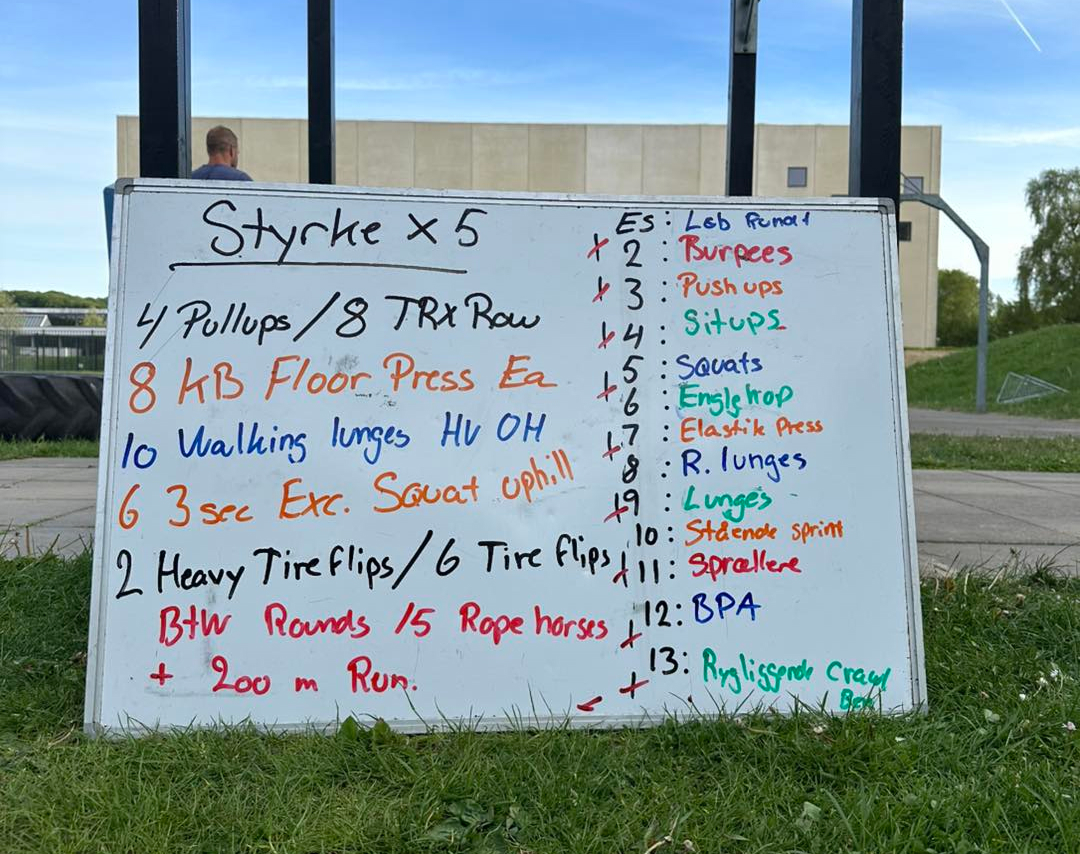 Styrke x 5
4 Pullups / 8 TRX Row
8 KB Floor Press Ea
10 Walking lunges HV OH
6 3 sec Exc. Squat uphill
2 Heavy Tire flips / 6 Tire flips
BtW Rounds 15 Rope horses
+ 200 m Run.
Es: Løb Rundt
2: Burpees
3: Push ups
4: Situps
5: Squats
6: Englehop
7: Elastik Press
8: R. lunges
9: Lunges
10: Stående sprint
11: Sprællere
12: BPA
13: Rygliggende Crawl
Ben